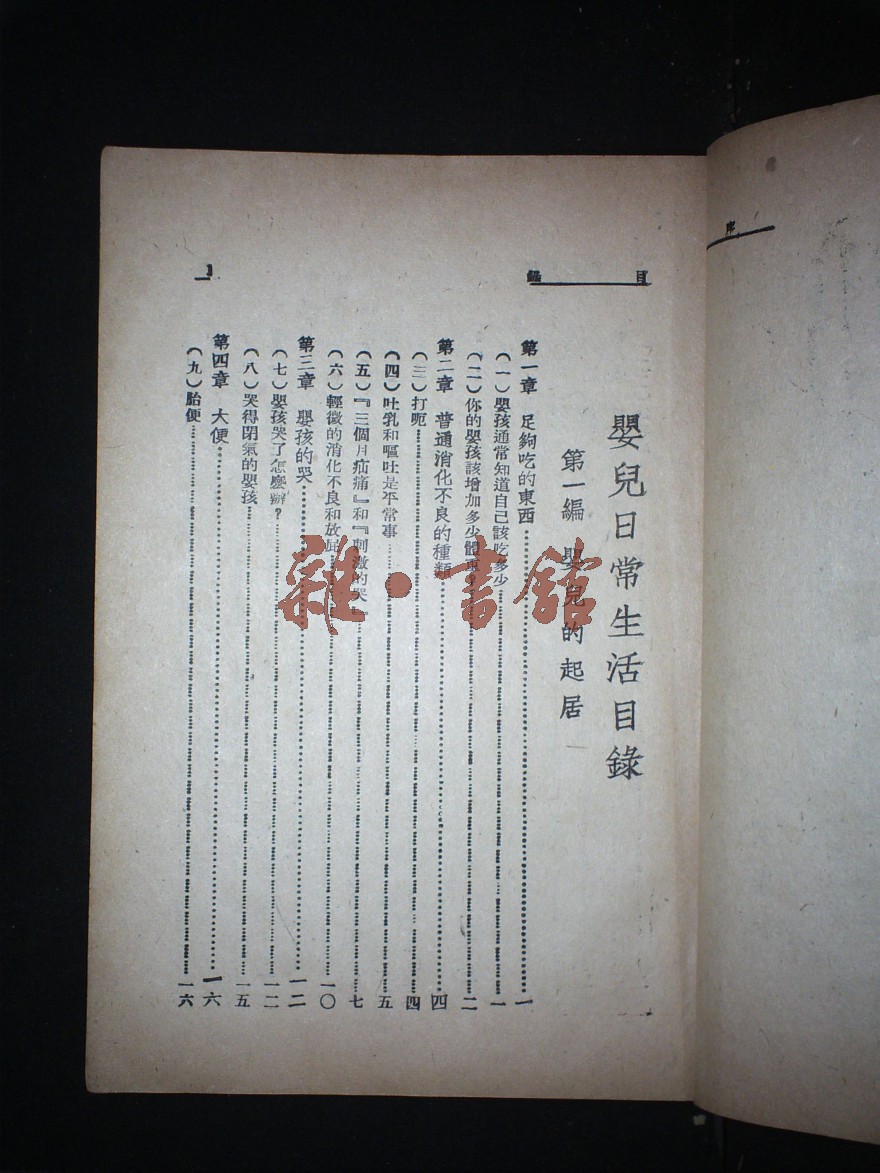 序
目錄
一
嬰兒日常生活目錄
第一編 嬰兒的起居
第一章 足夠吃的東西……一
(一)嬰孩通常知道自己該吃多少……一
(二)你的嬰孩該增加多少體重……二
第二章 普通消化不良的種類……四
(三)打呃……四
(四)吐乳和嘔吐是平常事……五
(五)『三個月疝痛』和『刺激的哭』……七
(六)輕微的消化不良和放屁……一〇
第三章 嬰孩的哭……一二
(七)嬰孩哭了怎麼辦?……一二
(八)哭得閉氣的嬰孩……一五
第四章 大便……一六
(九)胎便……一六
雜·書館